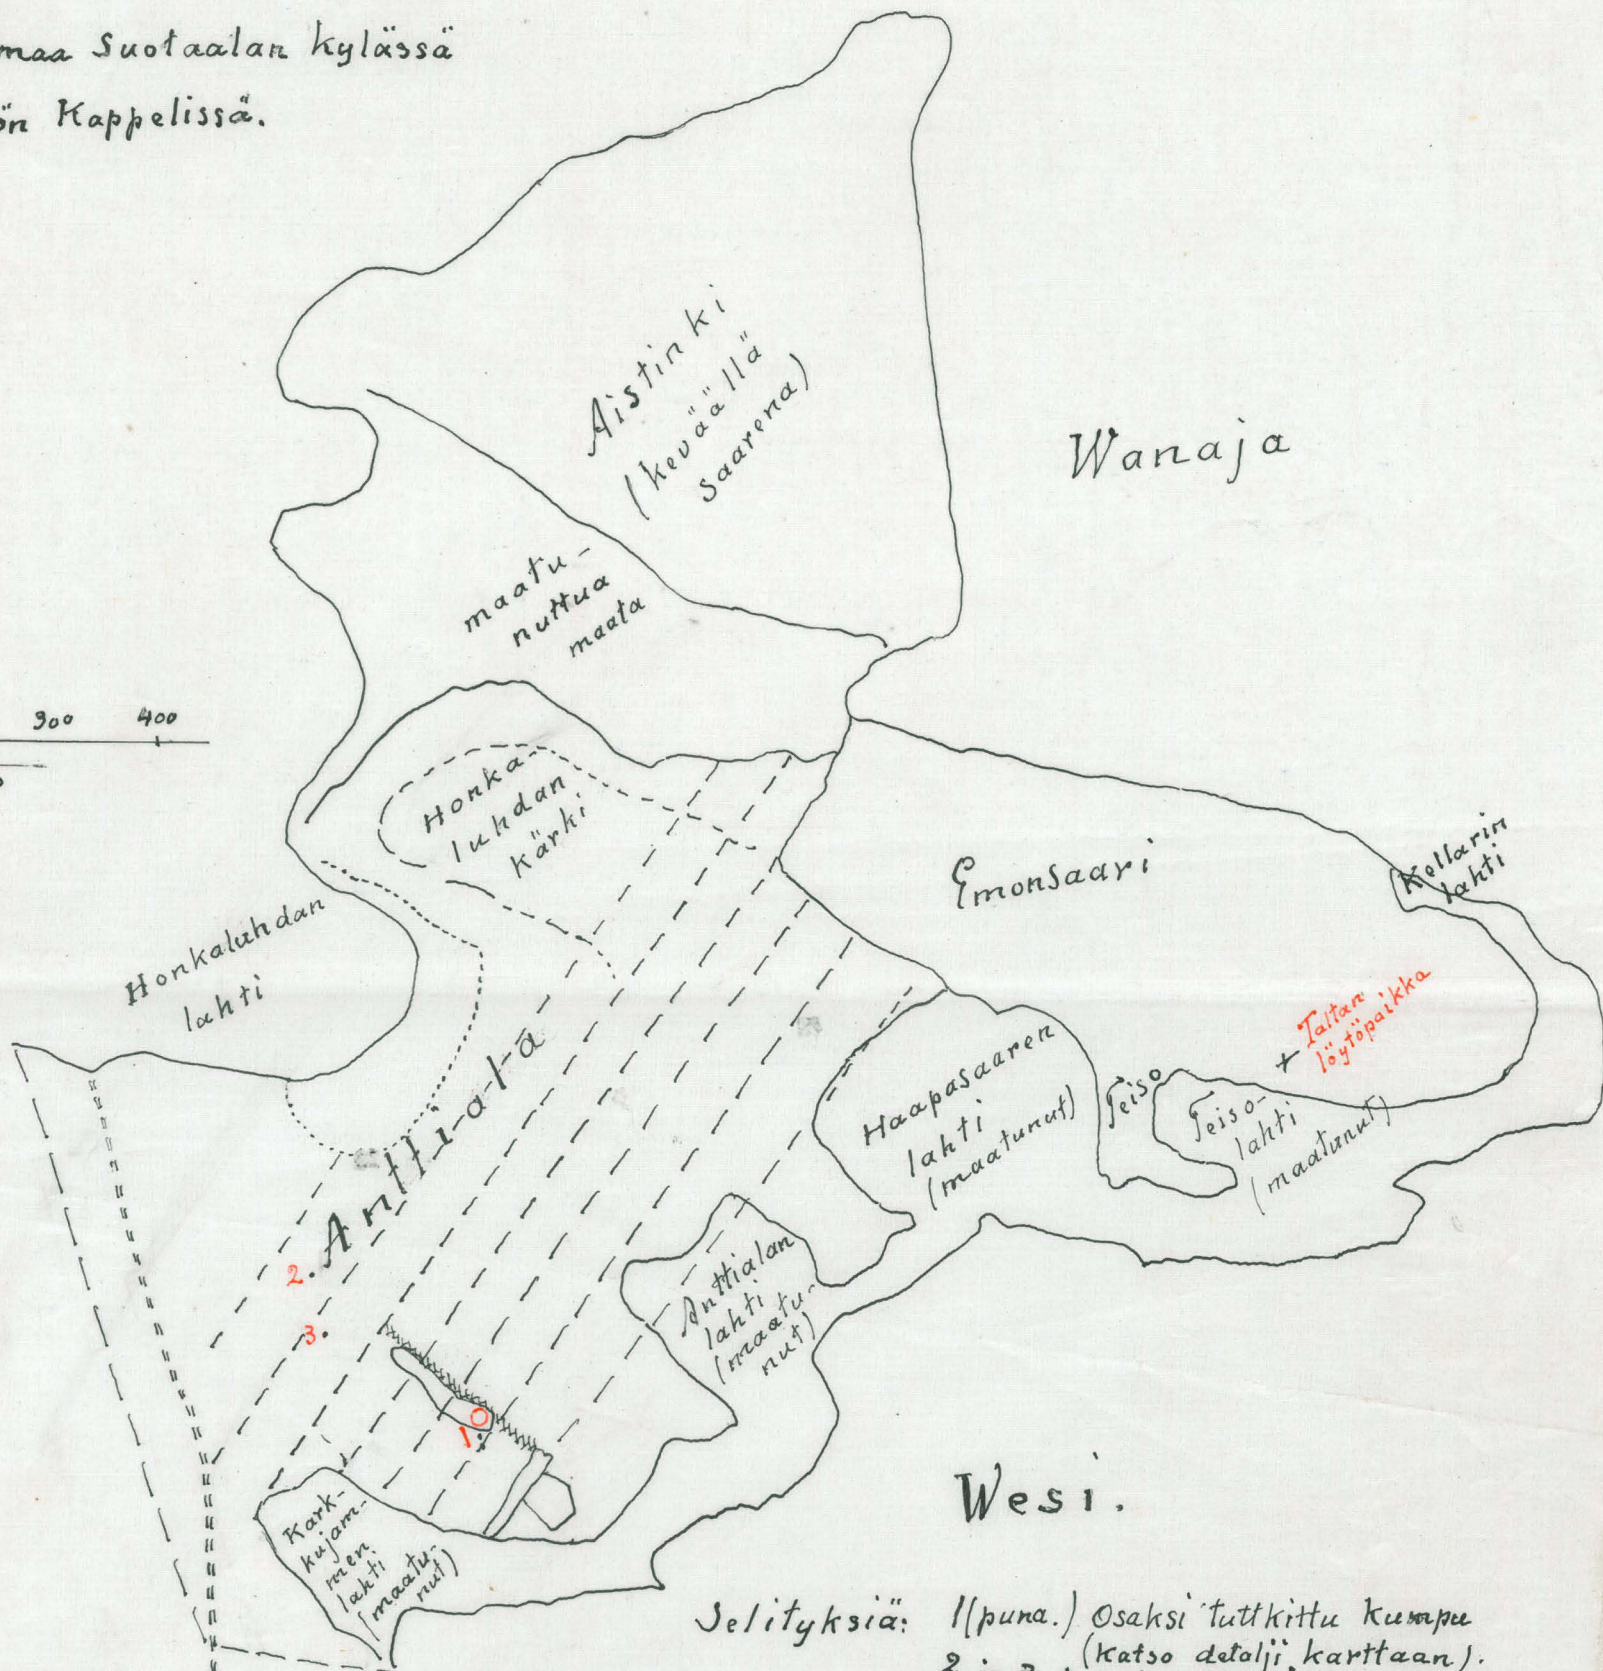 maa Suotaalan Kylässä
ön Kappelissä.
Aistinki
(keväällä
saarena)
Wanaja
maatu-
nuttua
maata
300 400
Honka-
luhdan
kärki
Emonsaari
Kellarin
lahti
Honkaluhdan
lahti
Taltan
löytöpaikka
Haapasaaren
lahti
(maatunut)
Teiso
Teiso-
lahti
(maatunut)
Anttiala
2.
3.
Anttialan
lahti
(maatu-
nut)
1.
Kark-
kujam-
men
lahti
(maatu-
nut)
Wesi.
Selityksiä: 1(puna.) Osaksi tuttkittu kumpu
(katso detalji karttaan).